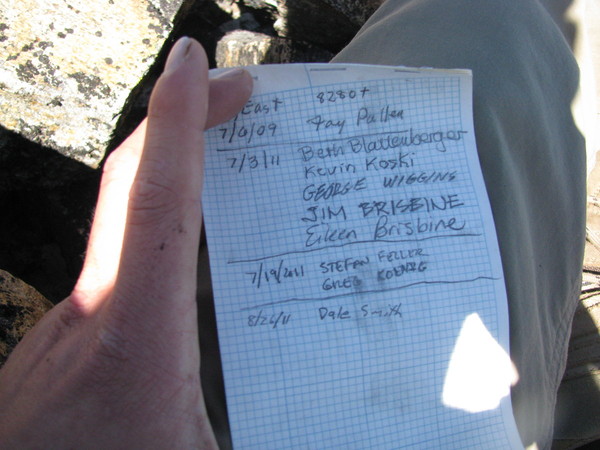 East 8280+
7/4/09 Fay Pullen
7/3/11 Beth Blattenberger
Kevin Koski
GEORGE WIGGINS
JIM BRISBINE
Eileen Brisbine
7/19/2011 STEFAN FELLER
GREG KOENIG
8/26/11 Dale Smith